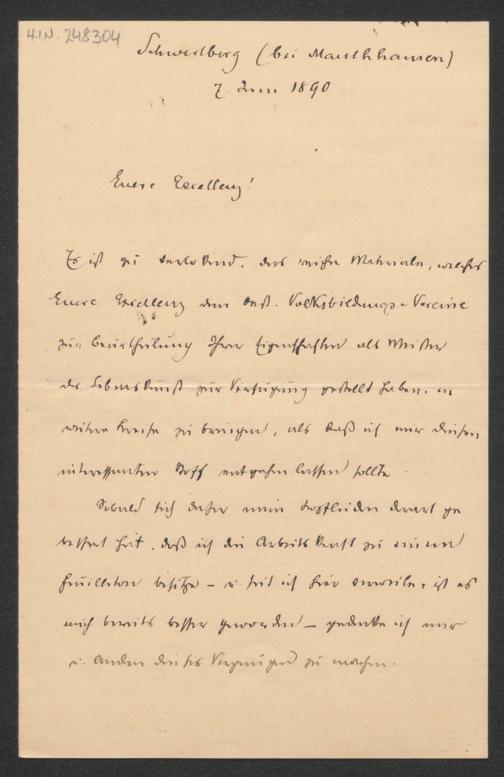 H.I.N. 248304
Schwertberg (bei Mauthhausen)
7. Juni 1890
Euere Excellenz!
Es ist zu verlockend, das reiche Materiale, welches
Euere Excellenz dem Volksbildungs-Vereine
zur Beurtheilung Ihrer Eigenschaften als Meister
der Lebenskunst zur Verfügung gestellt haben, in
weitere Kreise zu bringen, als daß ich mir diesen
interessanten Stoff entgehen lassen sollte.
Sobald sich daher mein Kopfleiden derart ge
bessert hat, daß ich die Arbeitskraft zu einem
Feuilleton besitze – u. seit ich hier verweile, ist es
mich bereits besser geworden – gedenke ich mir
u. anderen dieses Vergnügen zu machen.